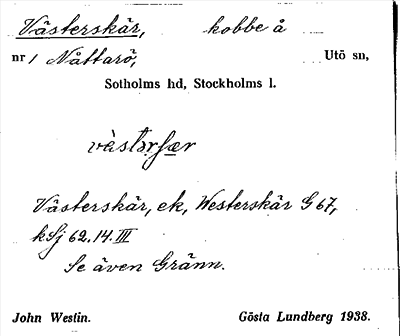 Västerskär, kobbe å
nr 1 Nåttarö, Utö sn,
Sotholms hd, Stockholms l.
västərʃær
Västerskär, ek, Westerskär G 67,
kSj 62.14.III
Se även Gränn.
John Westin. Gösta Lundberg 1938.